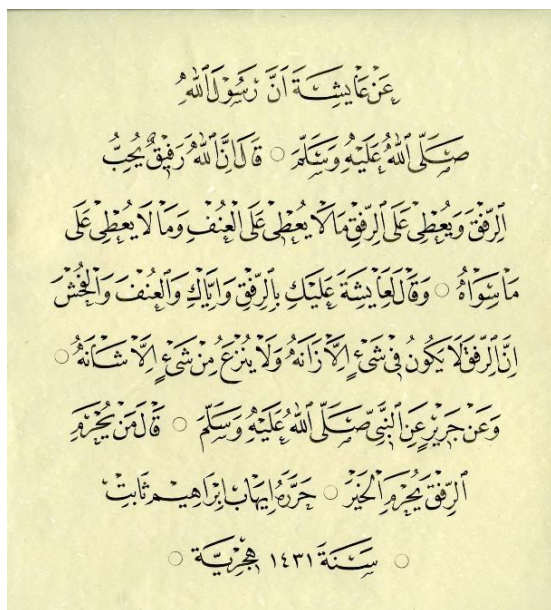 عَنْ عَايِشَةَ اَنَّ رَسُوْلَ اللهِ
صَلَّى اللهُ عَلَيْهِ وَسَلَّمَ ○ قَالَ اِنَّ اللهَ رَفِيْقٌ يُحِبُّ
الرِّفْقَ وَيُعْطِى عَلَى الرِّفْقِ مَا لَا يُعْطِى عَلَى الْعُنُفِ وَمَا لَا يُعْطِى عَلَى
مَا سِوَاهُ ○ وَقَالَ لِعَايِشَةَ عَلَيْكِ بِالرِّفْقِ وَاِيَّاكِ وَالْعُنُفَ وَالْفُحْشَ
اِنَّ الرِّفْقَ لَا يَكُوْنُ فِىْ شَىْءٍ اِلَّا زَانَهُ وَلَا يُنْزَعُ مِنْ شَىْءٍ اِلَّا شَانَهُ ○
وَعَنْ جَرِيْرٍ عَنِ النَّبِىِّ صَلَّى اللهُ عَلَيْهِ وَسَلَّمَ ○ قَالَ مَنْ يُحْرَمِ
الرِّفْقَ يُحْرَمِ الْخَيْرَ ○ حَرَّرَهُ اِيهَاب اِبْرَاهِيْم ثَابِت
○ سَنَةَ ١٤٣١ هِجْرِيَّة ○